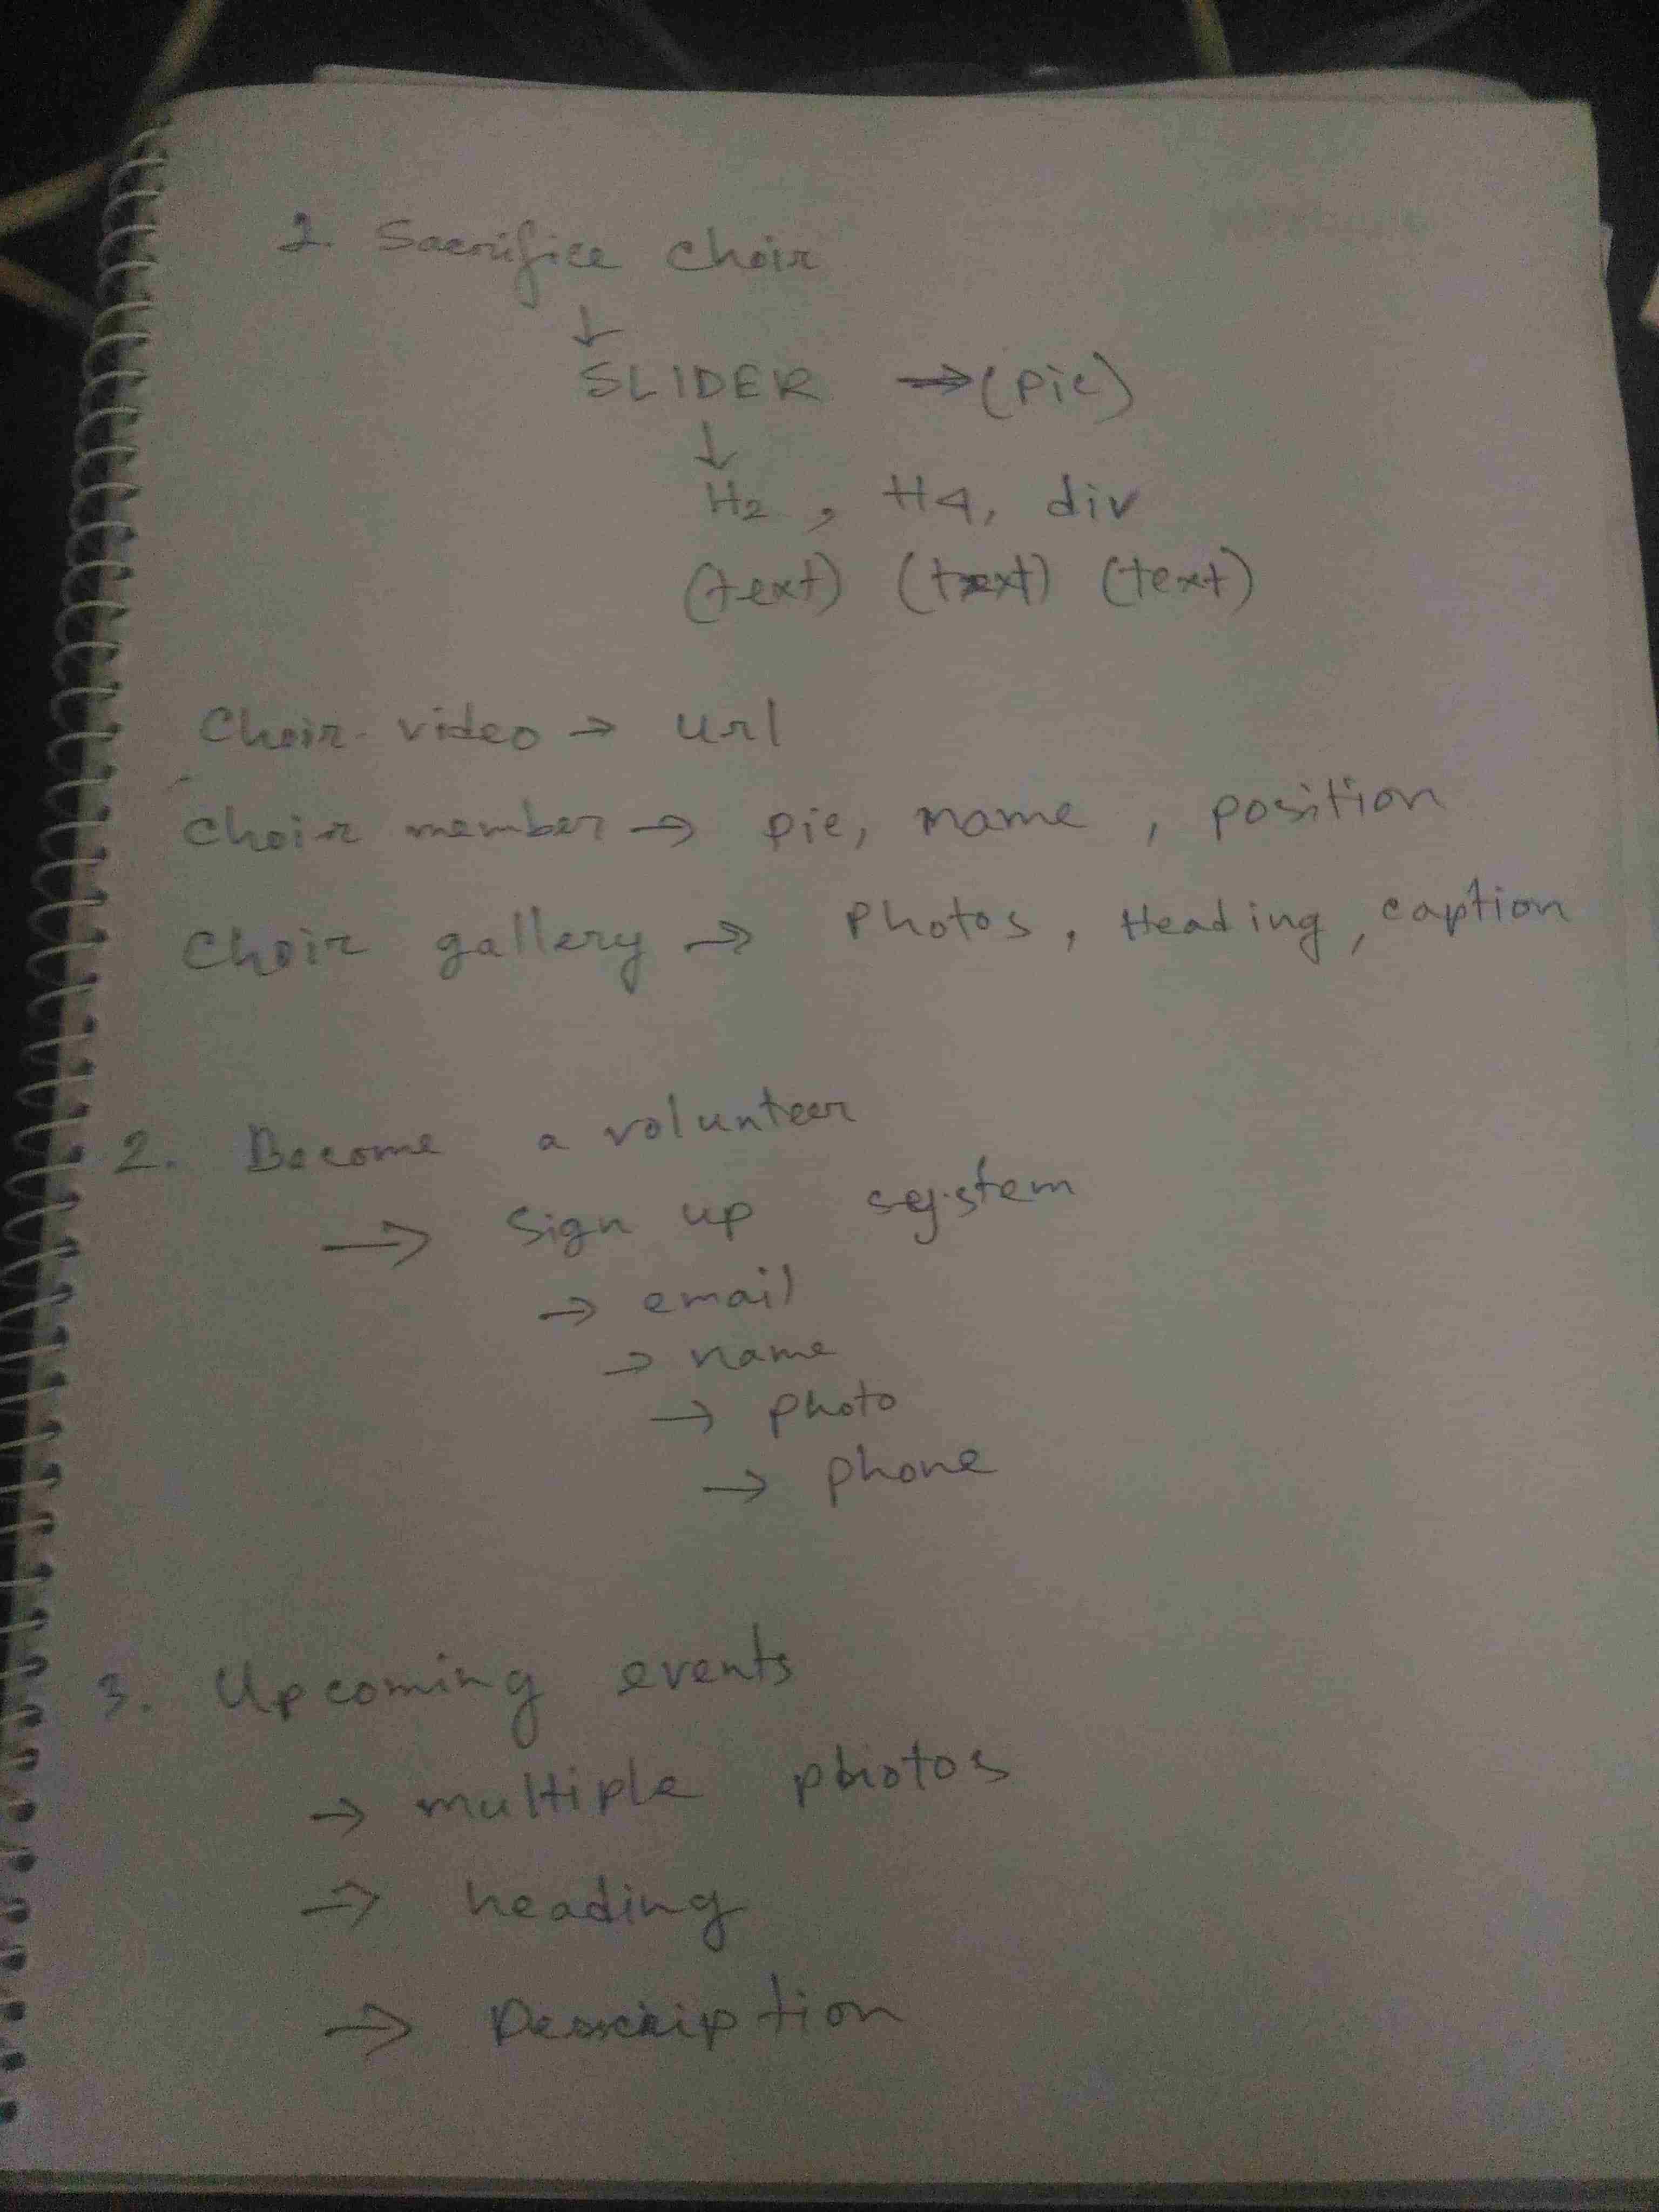 1. Sacrifice choir
↓
SLIDER → (pic)
↓
H2, H4, div
(text) (text) (text)
Choir video → url
Choir member → pic, name, position
Choir gallery → Photos, Heading, caption
2. Become a volunteer
→ Sign up system
→ email
→ name
→ photo
→ phone
3. Upcoming events
→ multiple photos
→ heading
→ Description